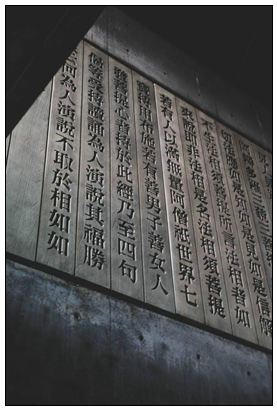 三藐三
如是知如是見如是信解
不生法相須菩提所言法相者如
來說即非法相是名法相須菩提
若有人以滿無量阿僧祇世界七
寶持用布施若有善男子善女人
發菩提心者持於此經乃至四句
偈等受持讀誦為人演說其福勝
云何為人演說不取於相如如